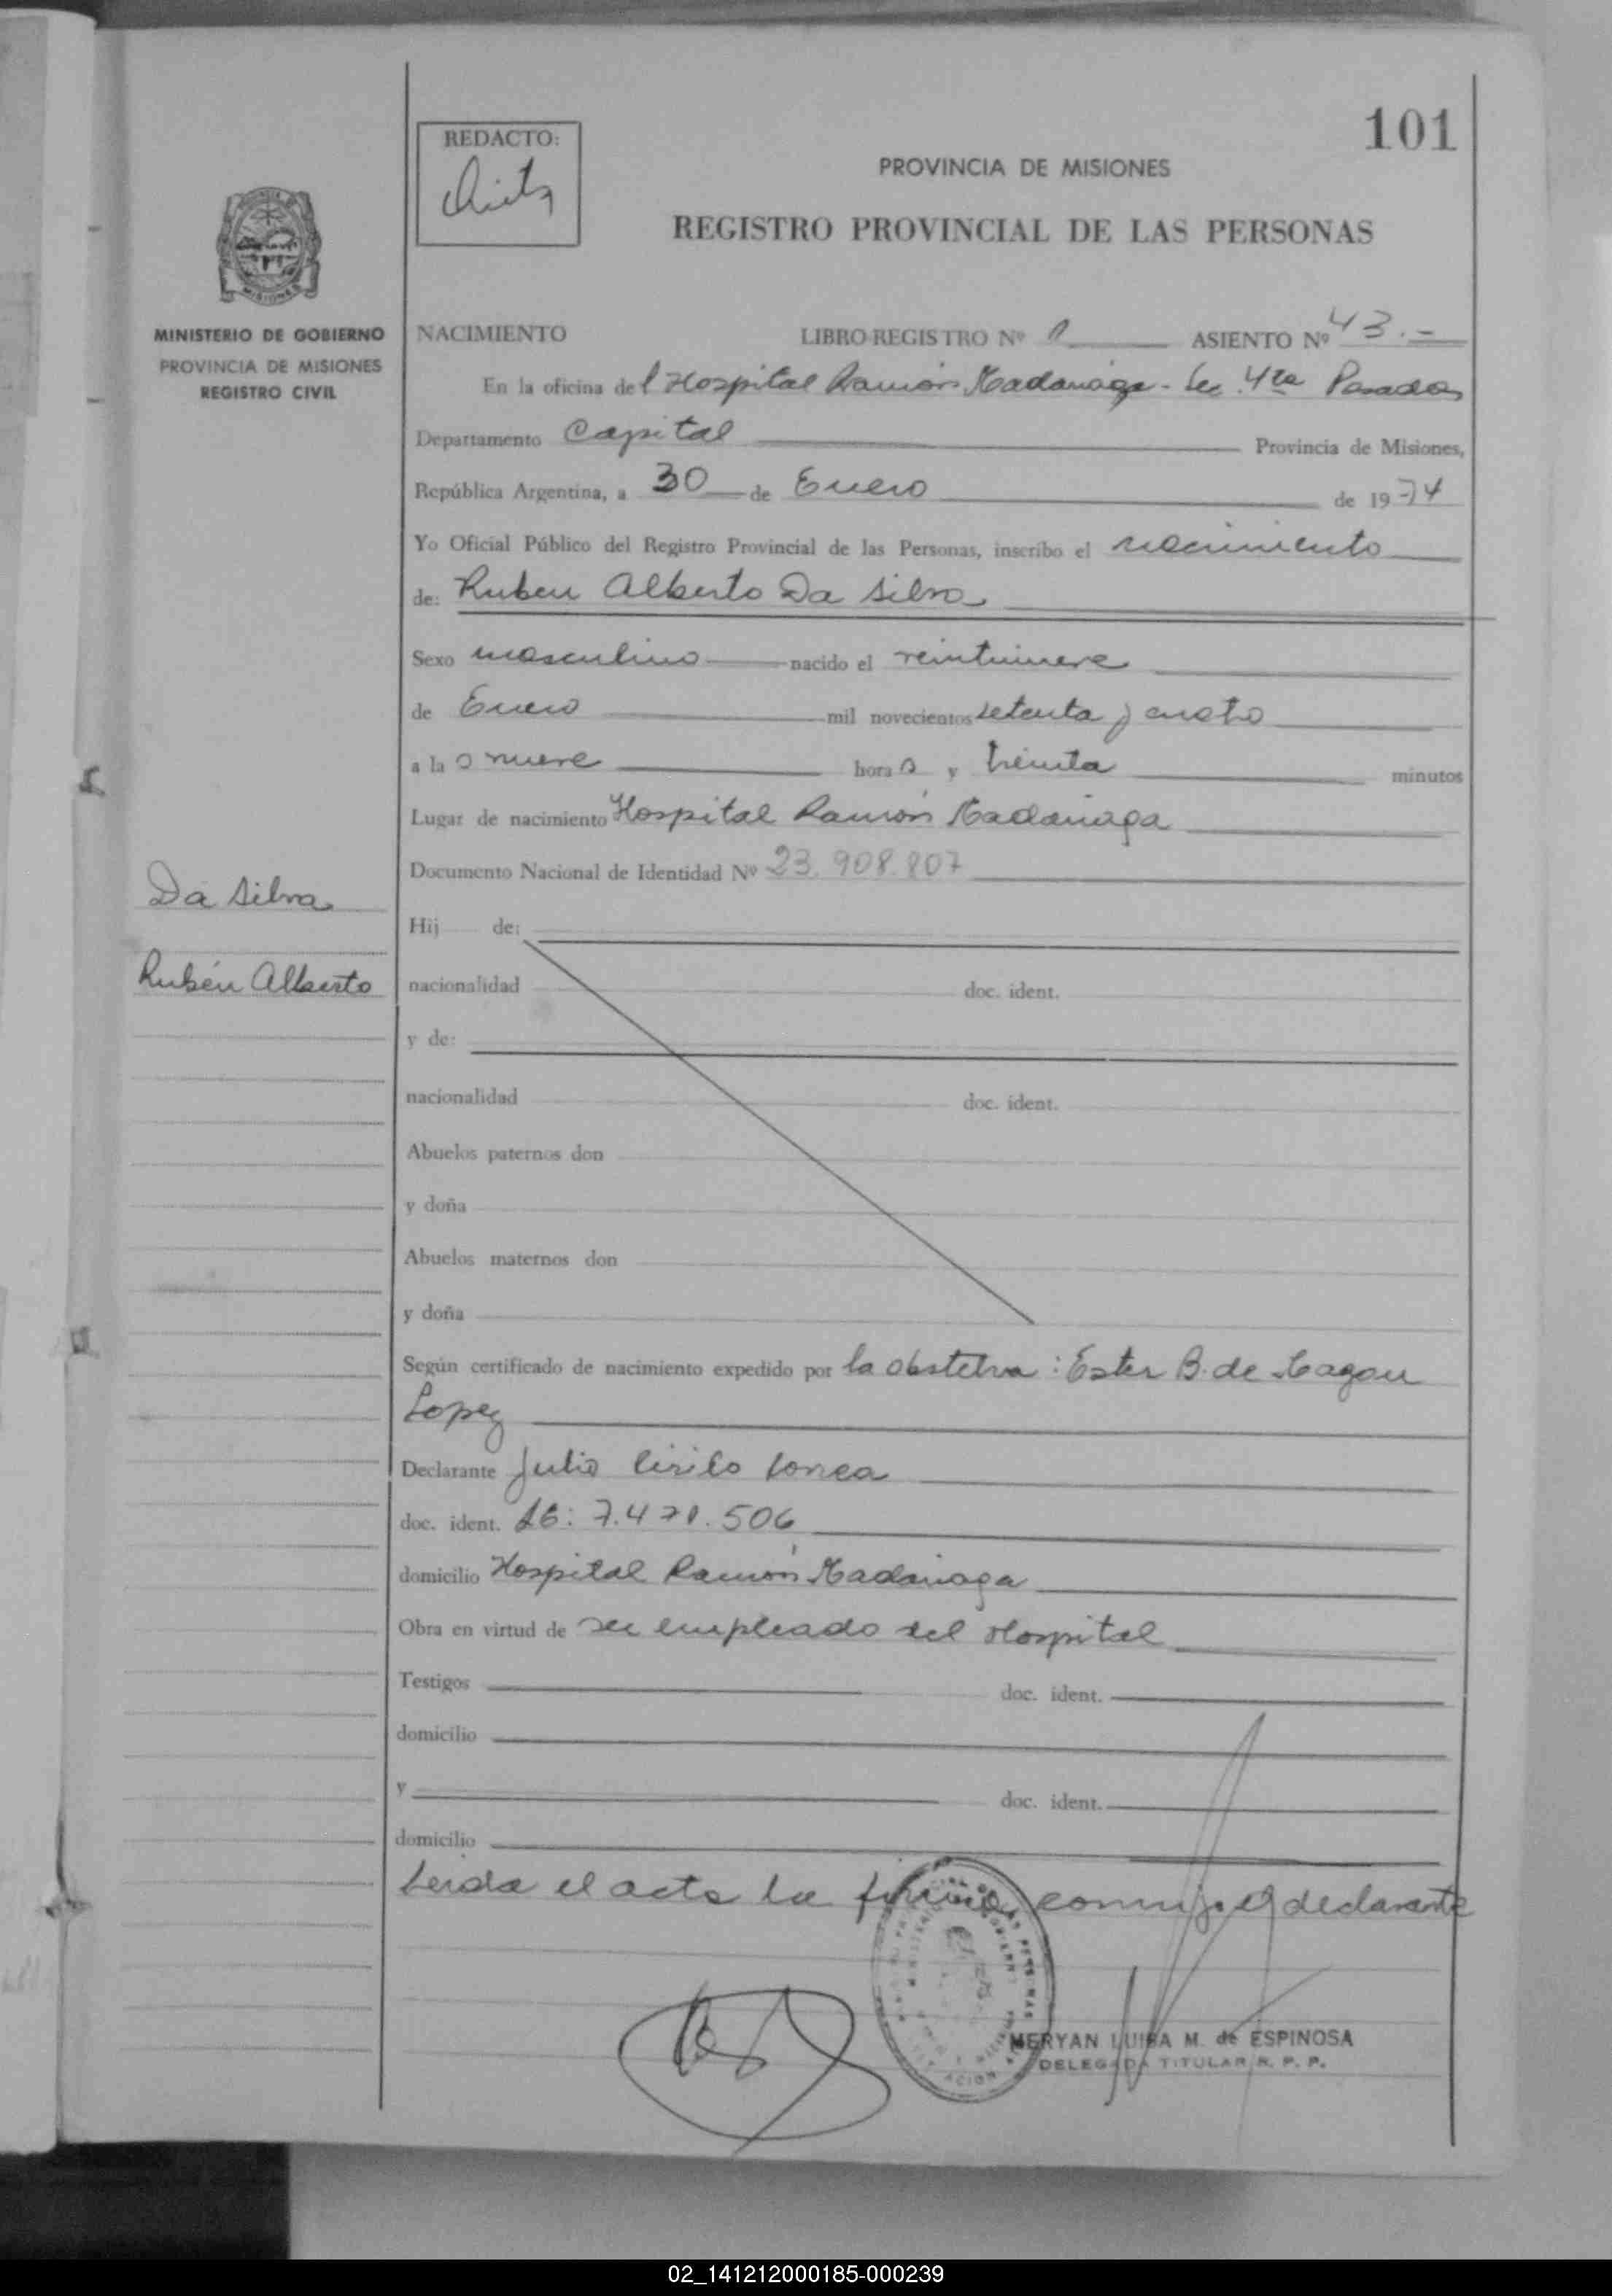 101
REDACTO:
PROVINCIA DE MISIONES
REGISTRO PROVINCIAL DE LAS PERSONAS
MISIONES
MINISTERIO DE GOBIERNO
PROVINCIA DE MISIONES
REGISTRO CIVIL
NACIMIENTO LIBRO-REGISTRO Nº 1 ASIENTO Nº 43.-
En la oficina del Hospital Ramón Madariaga - Sec. 4ta Posadas
Departamento Capital Provincia de Misiones,
República Argentina, a 30 de Enero de 1974
Yo Oficial Público del Registro Provincial de las Personas, inscribo el nacimiento
de: Ruben Alberto Da Silva
Sexo masculino nacido el veintinueve
de Enero mil novecientos setenta y cuatro
a las nueve horas y treinta minutos
Lugar de nacimiento Hospital Ramón Madariaga
Documento Nacional de Identidad Nº 23.908.807
Da Silva
Rubén Alberto
Hij de:
nacionalidad doc. ident.
y de:
nacionalidad doc. ident.
Abuelos paternos don
y doña
Abuelos maternos don
y doña
Según certificado de nacimiento expedido por la obstetra: Ester B. de
Lopez
Declarante Julio Cirilo
doc. ident. LE: 7.471.506
domicilio Hospital Ramón Madariaga
Obra en virtud de ser empleado del Hospital
Testigos doc. ident.
domicilio
y doc. ident.
domicilio
Leida el acta la firma conmigo el declarante
MERYAN LUISA M. de ESPINOSA
DELEGADA TITULAR R. P. P.
02_141212000185-000239